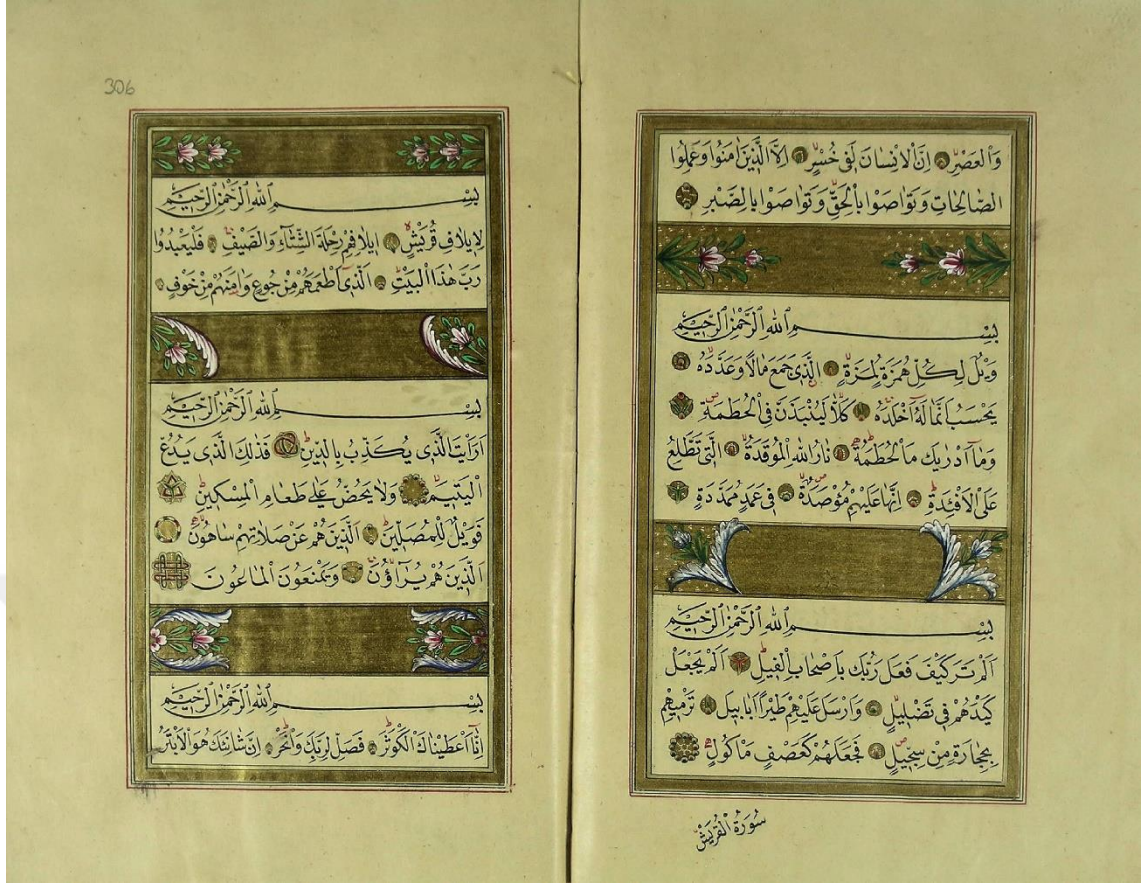 وَالْعَصْرِ اِنَّ الْاِنْسَانَ لَفٖى خُسْرٍ اِلَّا الَّذٖينَ اٰمَنُوا وَعَمِلُوا
الصَّالِحَاتِ وَتَوَاصَوْا بِالْحَقِّ وَتَوَاصَوْا بِالصَّبْرِ
بِسْمِ اللهِ الرَّحْمٰنِ الرَّحٖيمِ
وَيْلٌ لِكُلِّ هُمَزَةٍ لُمَزَةٍ اَلَّذٖى جَمَعَ مَالًا وَعَدَّدَهُ
يَحْسَبُ اَنَّ مَالَهُٓ اَخْلَدَهُ كَلَّا لَيُنْبَذَنَّ فِى الْحُطَمَةِ
وَمَٓا اَدْرٰيكَ مَا الْحُطَمَةُ نَارُ اللهِ الْمُوقَدَةُ اَلَّتٖى تَطَّلِعُ
عَلَى الْاَفْـِٔدَةِ اِنَّهَا عَلَيْهِمْ مُؤْصَدَةٌ فٖى عَمَدٍ مُمَدَّدَةٍ
بِسْمِ اللهِ الرَّحْمٰنِ الرَّحٖيمِ
اَلَمْ تَرَ كَيْفَ فَعَلَ رَبُّكَ بِاَصْحَابِ الْفٖيلِ اَلَمْ يَجْعَلْ
كَيْدَهُمْ فٖى تَضْلٖيلٍ وَاَرْسَلَ عَلَيْهِمْ طَيْرًا اَبَابٖيلَ تَرْمٖيهِمْ
بِحِجَارَةٍ مِنْ سِجّٖيلٍ فَجَعَلَهُمْ كَعَصْفٍ مَاْكُولٍ
سُورَةُ الْقُرَيْشِ
306
بِسْمِ اللهِ الرَّحْمٰنِ الرَّحٖيمِ
لِاٖيلَافِ قُرَيْشٍ اٖيلَافِهِمْ رِحْلَةَ الشِّتَٓاءِ وَالصَّيْفِ فَلْيَعْبُدُوا
رَبَّ هٰذَا الْبَيْتِ اَلَّذٖٓى اَطْعَمَهُمْ مِنْ جُوعٍ وَاٰمَنَهُمْ مِنْ خَوْفٍ
بِسْمِ اللهِ الرَّحْمٰنِ الرَّحٖيمِ
اَرَاَيْتَ الَّذٖى يُكَذِّبُ بِالدّٖينِ فَذٰلِكَ الَّذٖى يَدُعُّ
الْيَتٖيمَ وَلَا يَحُضُّ عَلٰى طَعَامِ الْمِسْكٖينِ
فَوَيْلٌ لِلْمُصَلّٖينَ اَلَّذٖينَ هُمْ عَنْ صَلَاتِهِمْ سَاهُونَ
اَلَّذٖينَ هُمْ يُرَٓاؤُنَ وَيَمْنَعُونَ الْمَاعُونَ
بِسْمِ اللهِ الرَّحْمٰنِ الرَّحٖيمِ
اِنَّٓا اَعْطَيْنَاكَ الْكَوْثَرَ فَصَلِّ لِرَبِّكَ وَانْحَرْ اِنَّ شَانِئَكَ هُوَ الْاَبْتَرُ